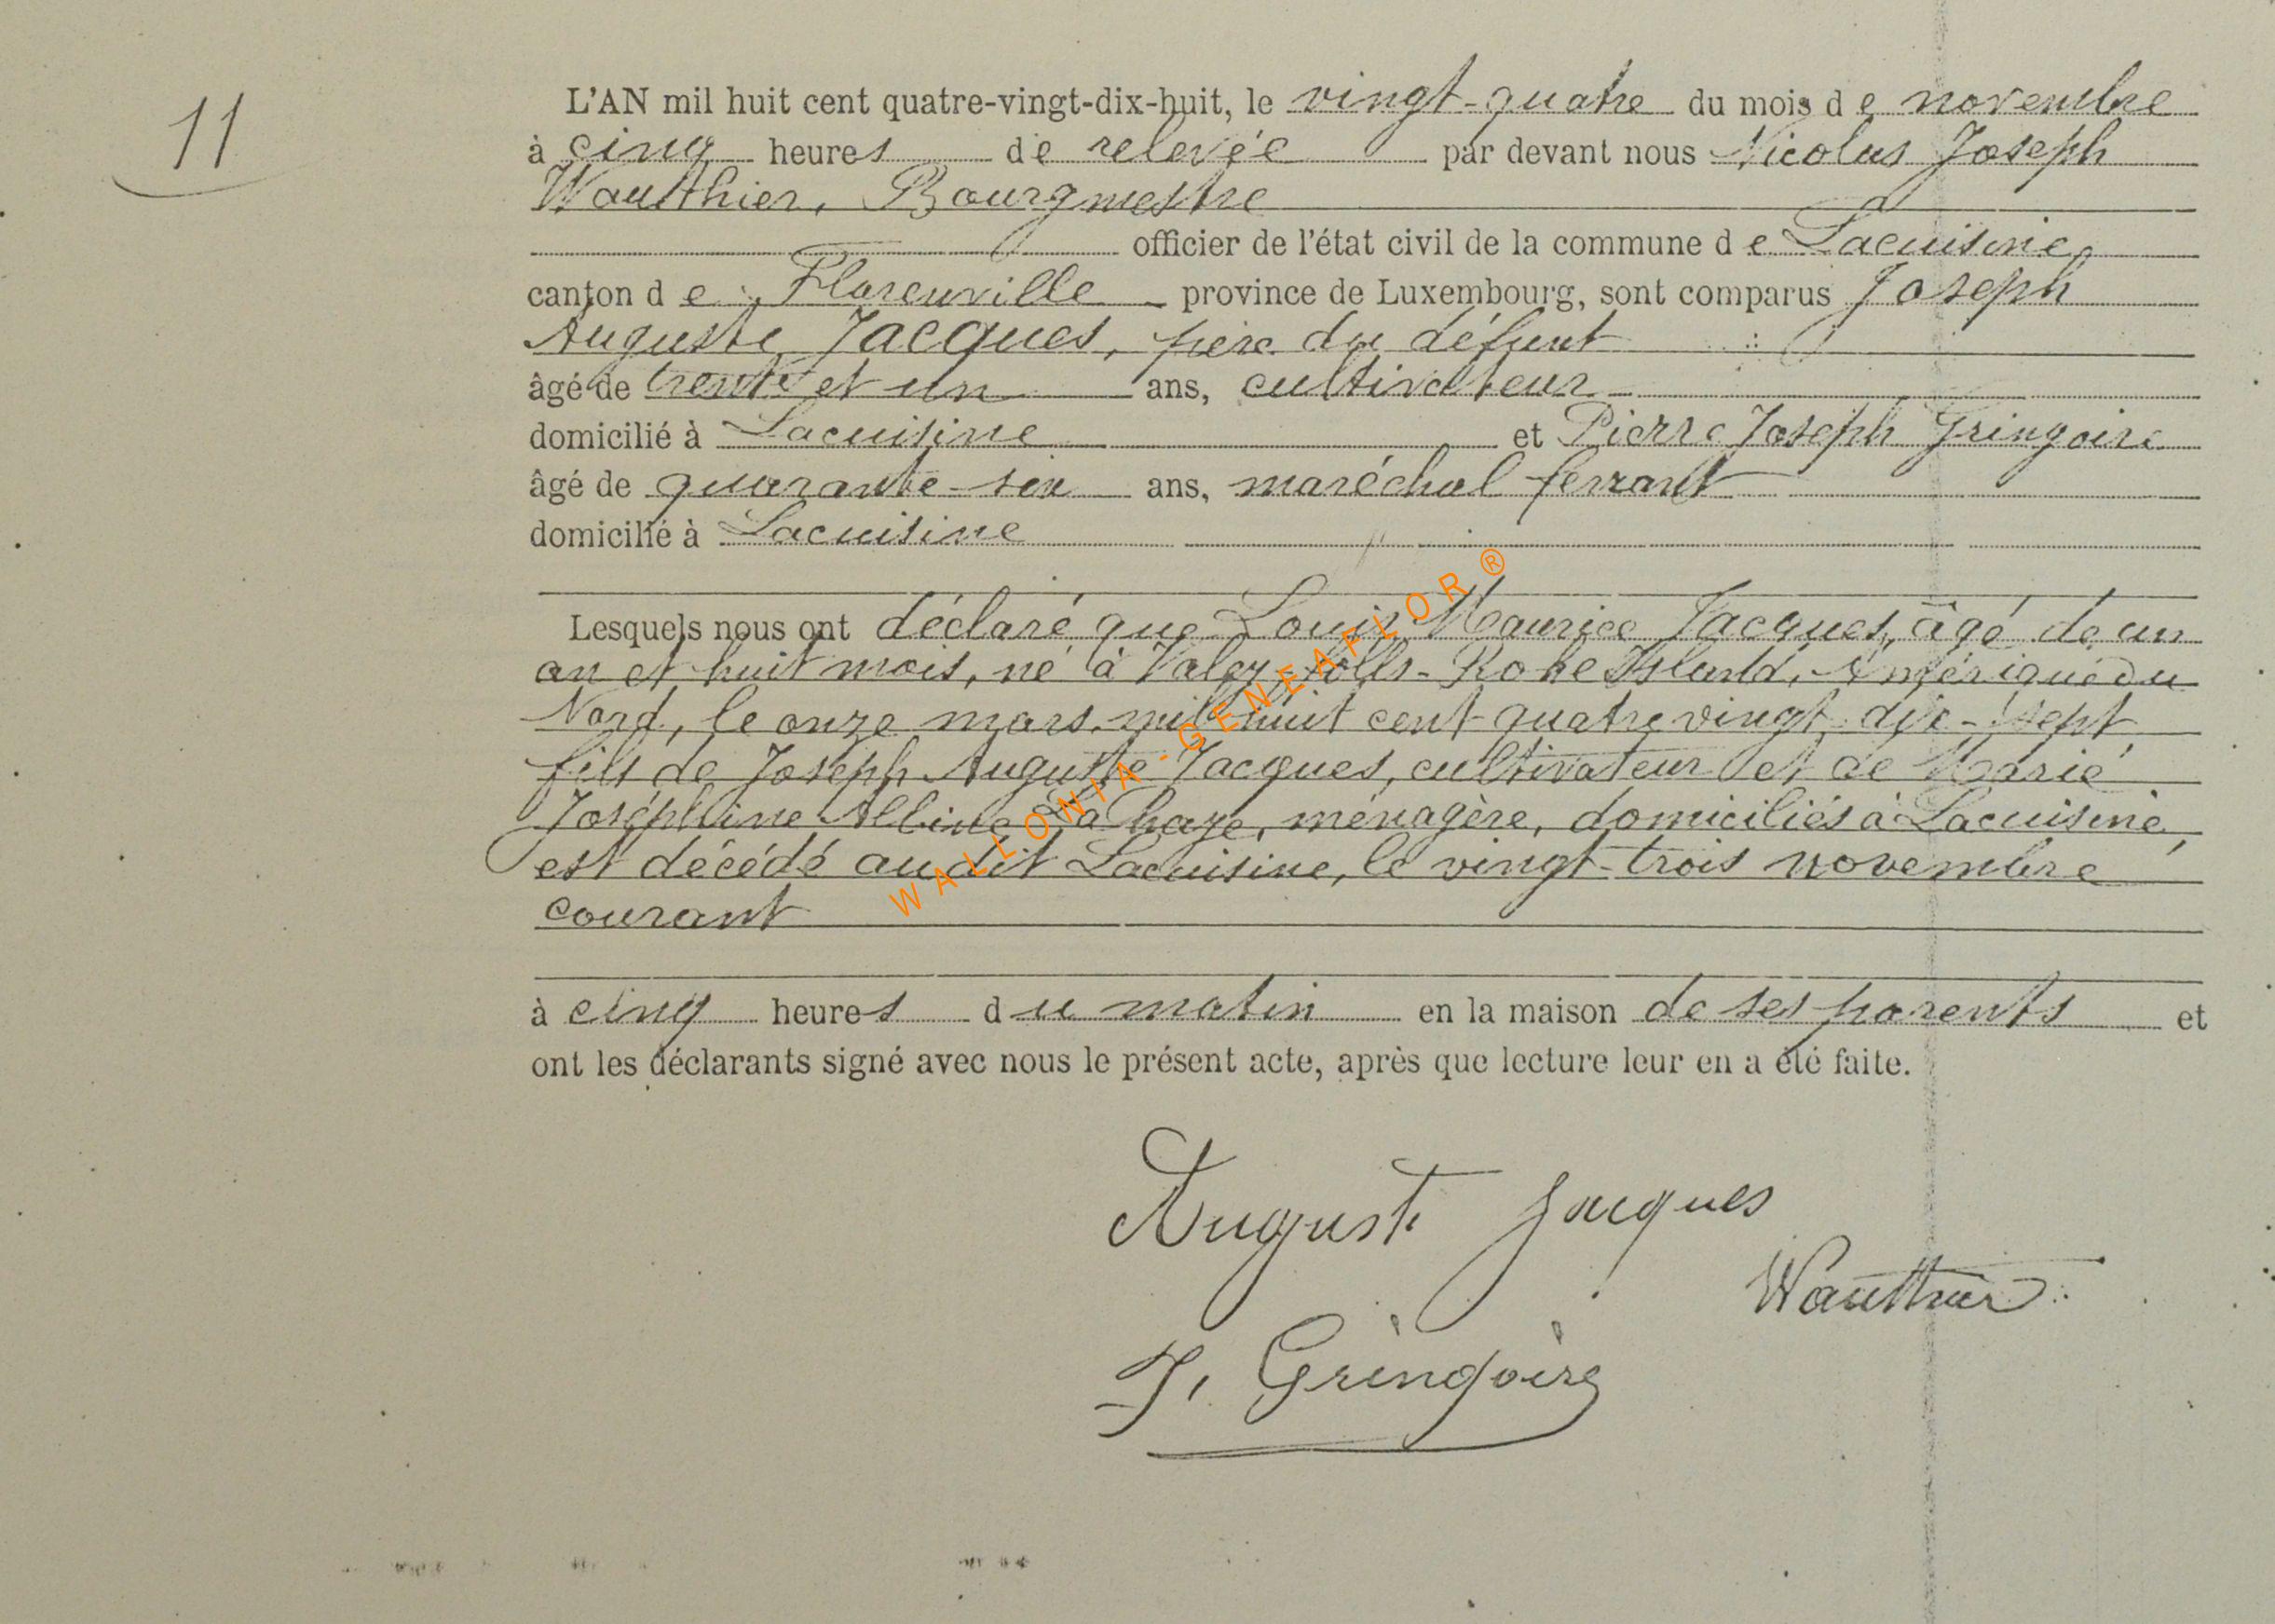 11
L'AN mil huit cent quatre-vingt-dix-huit, le vingt-quatre du mois de novembre
à cinq heures de relevée par devant nous Nicolas Joseph
Wauthier, Bourgmestre
officier de l'état civil de la commune de Lacuisine,
canton de Florenville province de Luxembourg, sont comparus Joseph
Auguste Jacques, père du défunt
âgé de trente et un ans, cultivateur
domicilié à Lacuisine et Pierre Joseph Gringoire
âgé de quarante-six ans, maréchal ferrant
domicilié à Lacuisine
Lesquels nous ont déclaré que Louis Maurice Jacques, âgé de un
an et huit mois, né à Valey folls-Rohe Island, Amérique du
Nord, le onze mars mil huit cent quatre vingt dix-sept
fils de Joseph Auguste Jacques, cultivateur et de Marie
Joséphine Albine La haye, ménagère, domiciliés à Lacuisine,
est décédé au dit Lacuisine, le vingt-trois novembre
courant
à cinq heures du matin en la maison de ses parents et
ont les déclarants signé avec nous le présent acte, après que lecture leur en a été faite.
Auguste Jacques
Wauthier
J. Gringoire
WALLONIA-GENEAFLOR®